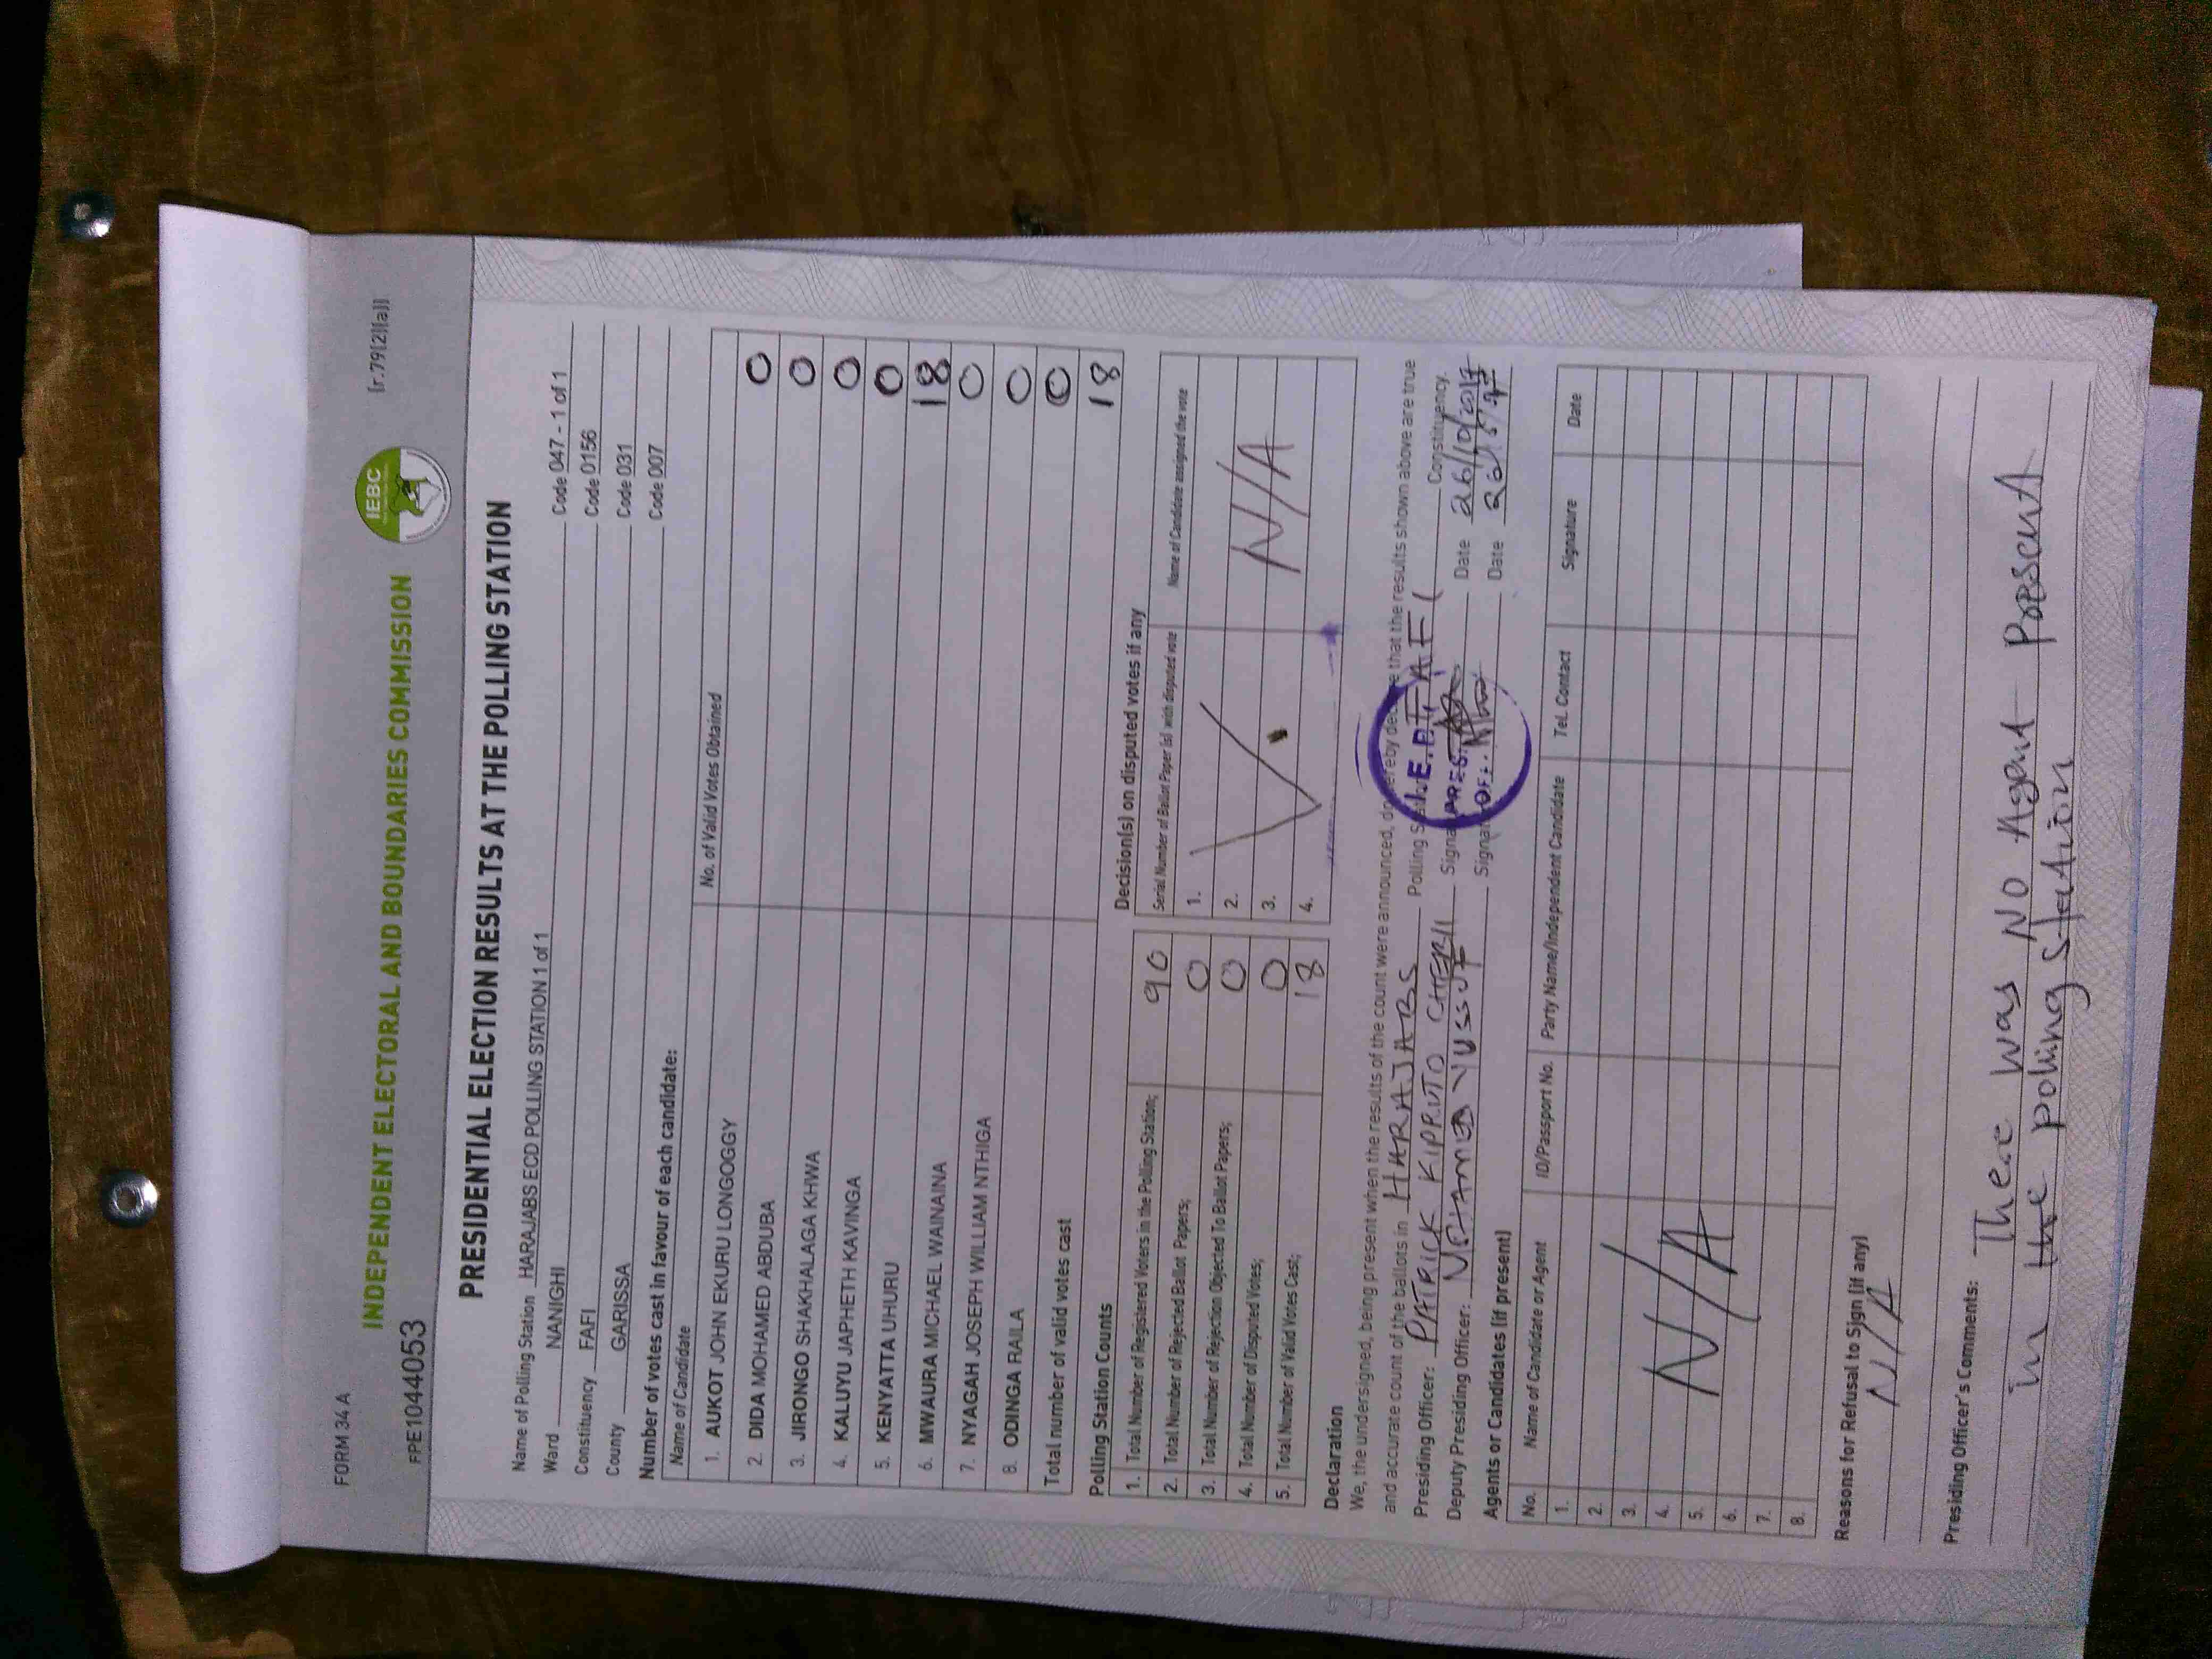 FORM 34 A
[r.79(2)(a)]
INDEPENDENT ELECTORAL AND BOUNDARIES COMMISSION
IEBC
FPE1044053
PRESIDENTIAL ELECTION RESULTS AT THE POLLING STATION
Name of Polling Station HARAJABS ECD POLLING STATION 1 of 1 Code 047 - 1 of 1
Ward NANIGHI Code 0156
Constituency FAFI Code 031
County GARISSA Code 007
Number of votes cast in favour of each candidate:
Name of Candidate No. of Valid Votes Obtained
1. AUKOT JOHN EKURU LONGOGGY 0
2. DIDA MOHAMED ABDUBA 0
3. JIRONGO SHAKHALAGA KHWA 0
4. KALUYU JAPHETH KAVINGA 0
5. KENYATTA UHURU 18
6. MWAURA MICHAEL WAINAINA 0
7. NYAGAH JOSEPH WILLIAM NTHIGA 0
8. ODINGA RAILA 0
Total number of valid votes cast 18
Polling Station Counts
1. Total Number of Registered Voters in the Polling Station; 90
2. Total Number of Rejected Ballot Papers; 0
3. Total Number of Rejection Objected To Ballot Papers; 0
4. Total Number of Disputed Votes; 0
5. Total Number of Valid Votes Cast; 18
Decision(s) on disputed votes if any
Serial Number of Ballot Paper (s) with disputed vote Name of Candidate assigned the vote
1.
2.
3. N/A
4.
Declaration
We, the undersigned, being present when the results of the count were announced, do hereby declare that the results shown above are true
and accurate count of the ballots in HARAJABS Polling FAFI Constituency.
Presiding Officer: PATRICK KIPRUTO Date 26/10/2017
Deputy Presiding Officer: MOHAMED YUSSUF Date
PRES.
OFF.
Agents or Candidates (if present)
No. Name of Candidate or Agent ID/Passport No. Party Name/Independent Candidate Tel. Contact Signature Date
1.
2.
3.
4.
5. N/A
6.
7.
8.
Reasons for Refusal to Sign (if any)
N/A
Presiding Officer's Comments: There was NO Agent Present
in the polling station